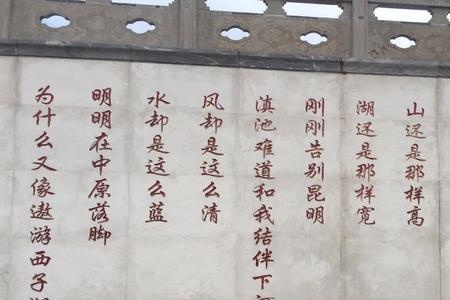 山还是那样高
湖还是那样宽
刚刚告别昆明
滇池难道和我结伴下
风却是这么清
水却是这么蓝
明明在中原落脚
为什么又像遨游西子湖